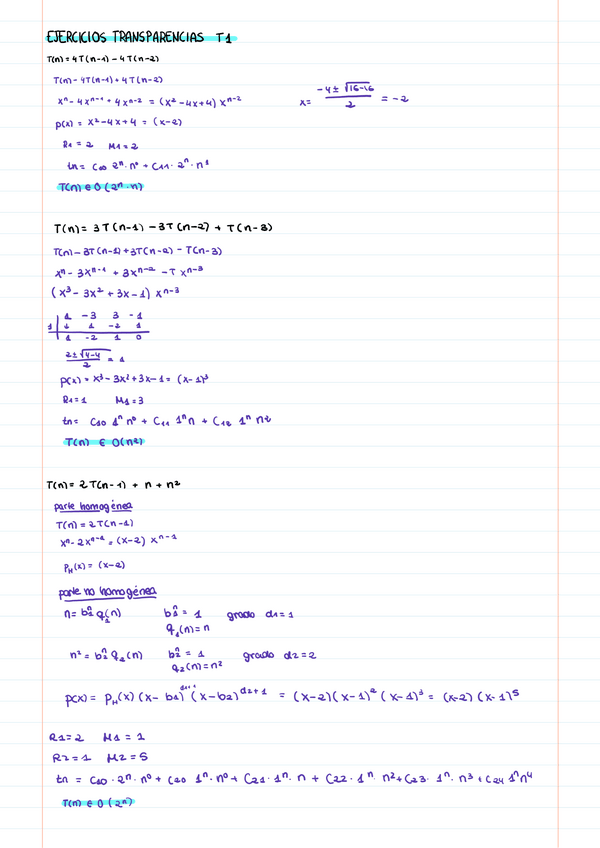 EJERCICIOS TRANSPARENCIAS T1
T(n) = 4T(n-1) - 4T(n-2)
T(n) - 4T(n-1) + 4T(n-2)
xⁿ - 4xⁿ⁻¹ + 4xⁿ⁻² = (x² - 4x + 4) xⁿ⁻²
x = (-4 ± √16-16) / 2 = -2
p(x) = x² - 4x + 4 = (x-2)
R1 = 2 M1 = 2
tn = C10 2ⁿ · n⁰ + C11 · 2ⁿ · n¹
T(n) ∈ O(2ⁿ · n)
T(n) = 3T(n-1) - 3T(n-2) + T(n-3)
T(n) - 3T(n-1) + 3T(n-2) - T(n-3)
xⁿ - 3xⁿ⁻¹ + 3xⁿ⁻² - T xⁿ⁻³
(x³ - 3x² + 3x - 1) xⁿ⁻³
1 -3 3 -1
1 ↓ 1 -2 1
1 -2 1 0
(2 ± √4-4) / 2 = 1
p(x) = x³ - 3x² + 3x - 1 = (x-1)³
R1 = 1 M1 = 3
tn = C10 1ⁿ n⁰ + C11 1ⁿ n + C12 1ⁿ n²
T(n) ∈ O(n²)
T(n) = 2T(n-1) + n + n²
parte homogénea
T(n) = 2T(n-1)
xⁿ - 2xⁿ⁻¹ = (x-2) xⁿ⁻¹
PH(x) = (x-2)
parte no homogénea
n = b1ⁿ q1(n) b1ⁿ = 1 grado d1 = 1
q1(n) = n
n² = b2ⁿ q2(n) b2ⁿ = 1 grado d2 = 2
q2(n) = n²
p(x) = PH(x) (x - b1)ᵈ¹⁺¹ (x - b2)ᵈ²⁺¹ = (x-2)(x-1)² (x-1)³ = (x-2) (x-1)⁵
R1 = 2 M1 = 1
R2 = 1 M2 = 5
tn = C10 · 2ⁿ · n⁰ + C20 1ⁿ · n⁰ + C21 · 1ⁿ · n + C22 · 1ⁿ · n² + C23 · 1ⁿ · n³ + C24 1ⁿ n⁴
T(n) ∈ O(2ⁿ)